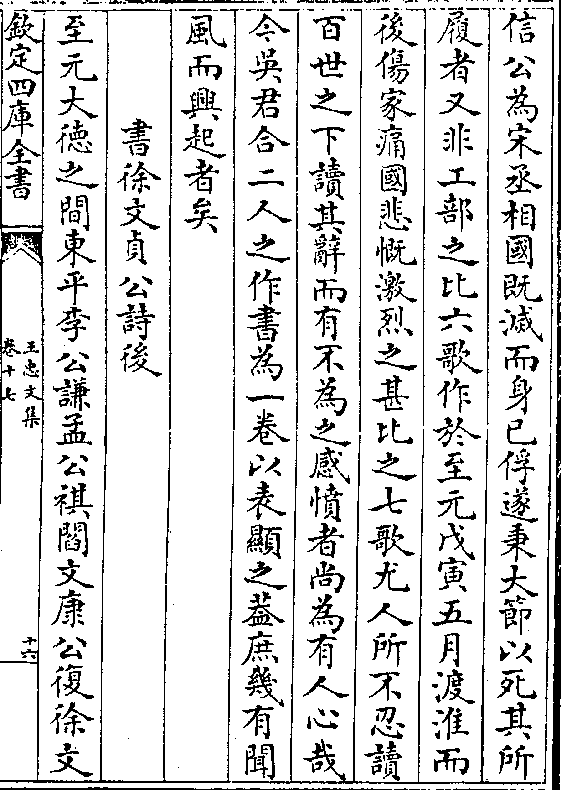 信公為宋丞相國既滅而身已俘遂秉大節以死其所
履者又非工部之比六歌作於至元戊寅五月渡淮而
後傷家痛國悲慨激烈之甚比之七歌尤人所不忍讀
百世之下讀其辭而有不為之感憤者尚為有人心哉
今吳君合二人之作書為一卷以表顯之葢庶幾有聞
風而興起者矣
書徐文貞公詩後
至元大德之間東平李公謙孟公祺閻文康公復徐文
欽定四庫全書
王忠文集
卷十七
十六